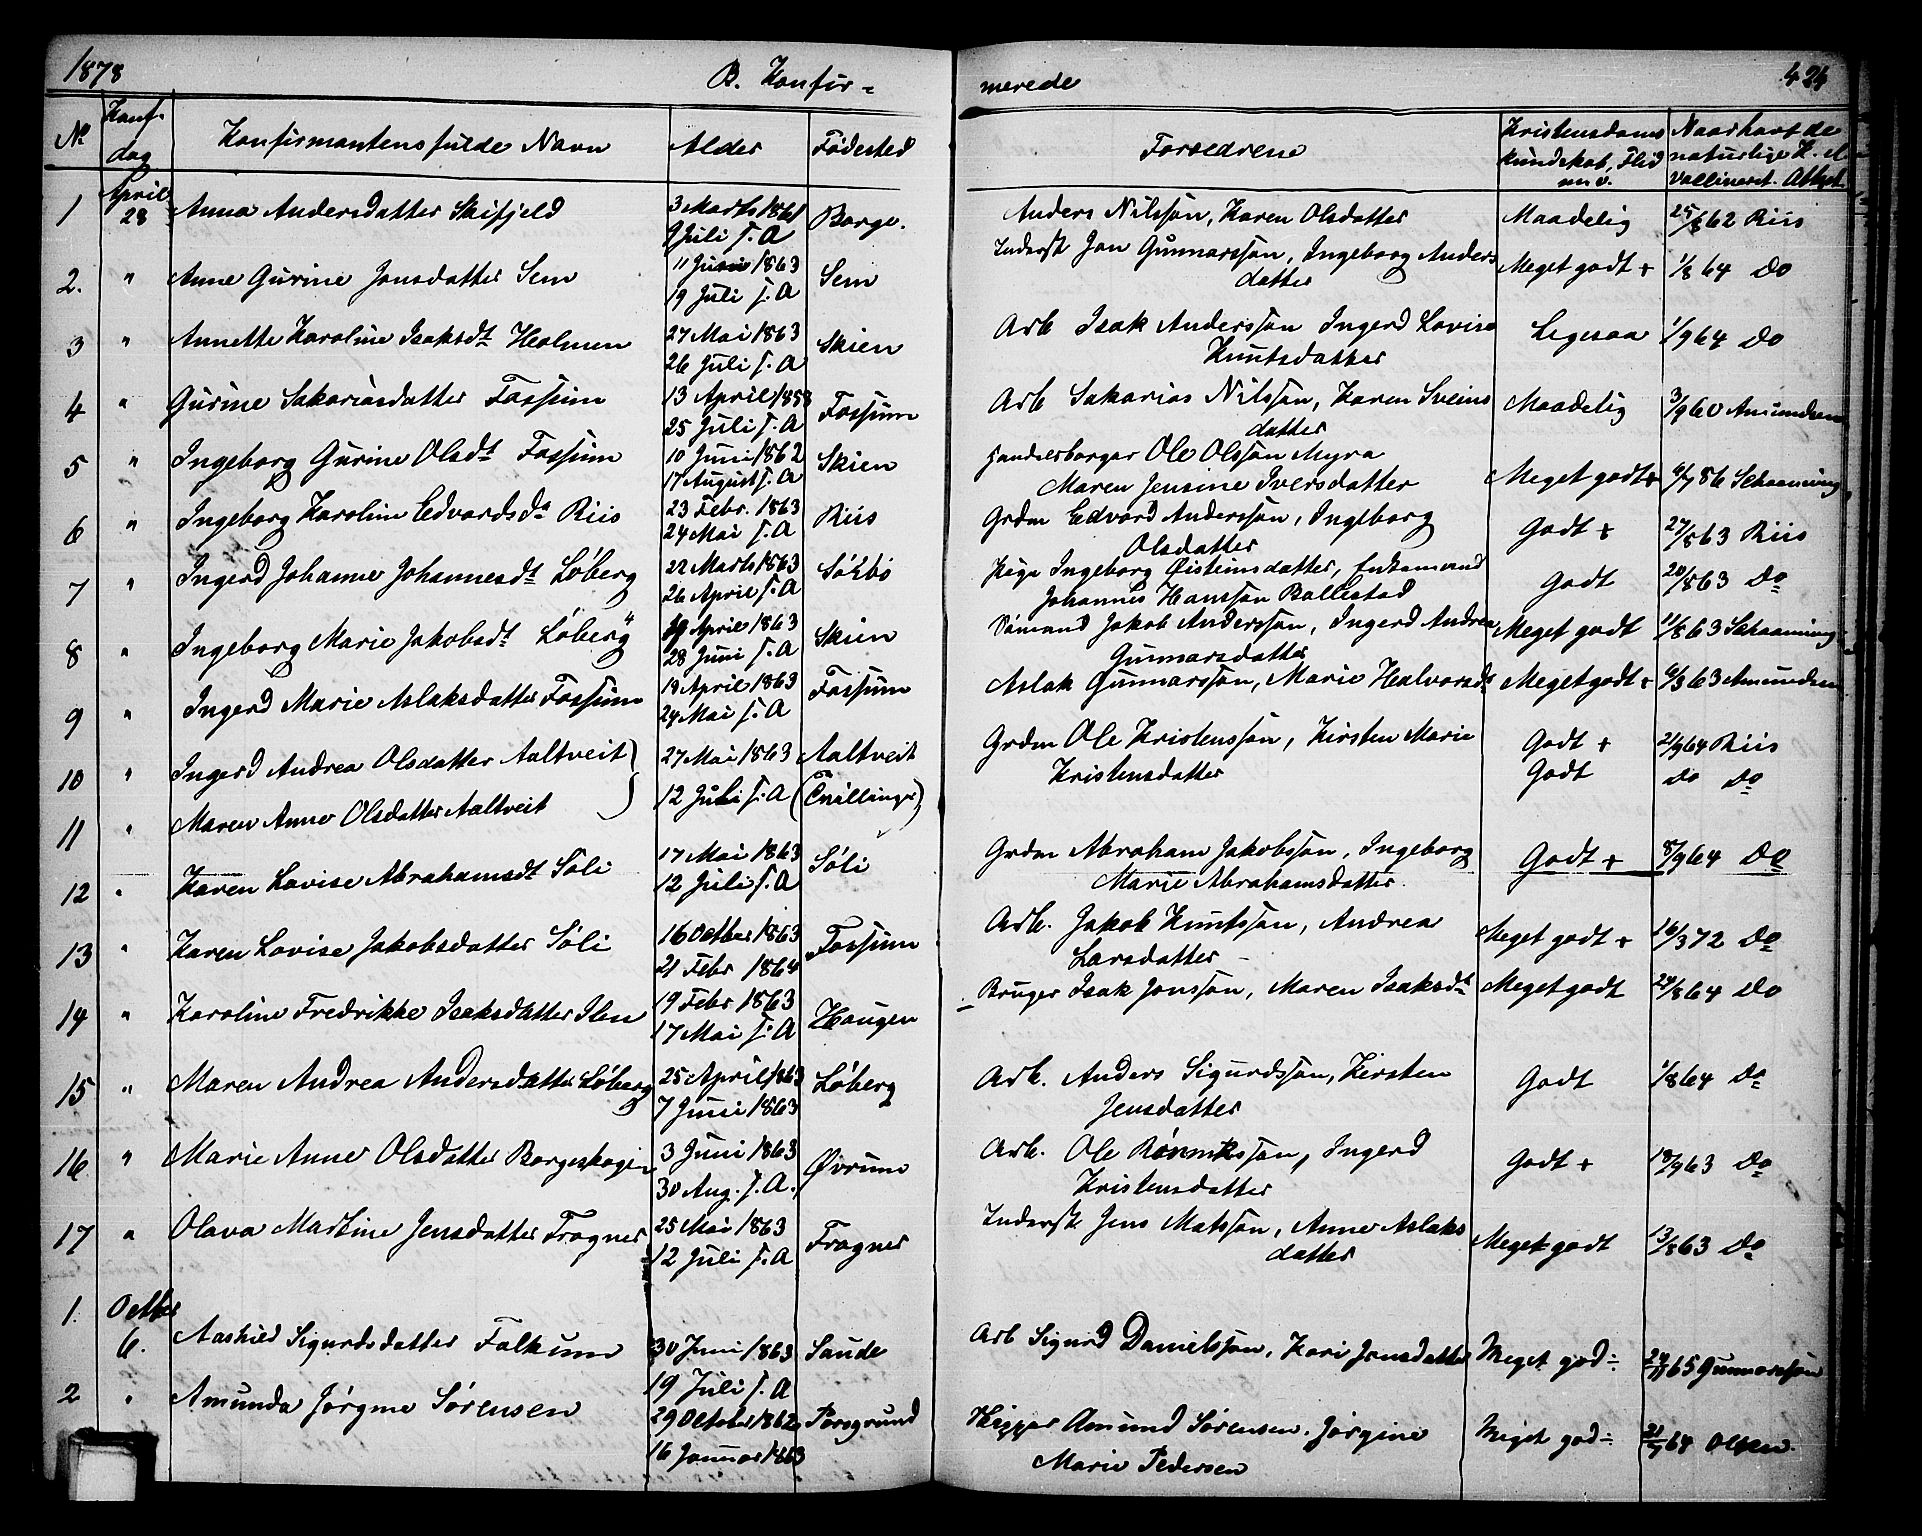 1878 B. Konfir- merede 424
No Konf. dag Konfirmantens fulde Navn Alder Fødested Forældrene Kristensdoms kundskab, Flid m.v. Naar havt de naturlige K. el. vaccineret. Attest
1 April 28 Anna Andersdatter Skifjeld 3 Marts 1861 Borge. Anders Nilssøn, Karen Olsdatter Maadelig 25/8 62 Riis
9 Juli s. A
2. " Anne Gurine Jonsdatter Sem 11 Juni 1863 Sem Inderst Jon Gunnarssøn, Ingeborg Anders Meget godt + 1/8 64 Do
19 Juli s. A datter
3 " Annette Karoline Isaksdt Holmen 27 Mai 1863 Skien Arb Isak Anderssøn Ingerd Lovise Ligesaa 1/9 64 Do
26 Juli s. A Knutsdatter
4 " Gurine Sakariasdatter Fossum 13 April 1858 Fossum Arb Sakarias Nilssøn, Karen Sveins Maadelig 3/9 60 Amundsen
25 Juli s. A datter
5 " Ingeborg Gurine Olsdt Fossum 10 Juni 1862 Skien Handelsborger Ole Olssøn Myra
17 August s. A Maren Jensine Iversdatter Meget godt+ 6/7 86 Schaanning
6 " Ingeborg Karoline Edvardsdt Riis 23 Febr. 1863 Riis Grdm Edvard Anderssøn, Ingeborg Godt + 27/8 63 Riis
24 Mai s. A Olsdatter
7 " Ingerd Johanne Johannesdt Løberg 22 Marts 1863 Søkbø Pige Ingeborg Øisteinsdatter, Enkemand Godt 20/8 63 Do
26 April s. A Johannes Hanssøn Ballestad
8 " Ingeborg Marie Jakobsdt Løberg 19 April 1863 Skien Sømand Jakob Anderssøn, Ingerd Andrea Meget godt 11/8 63 Schaanning
28 Juni s. A Gunnarsdatter
9 " Ingerd Marie Aslaksdatter Fossum 19 April 1863 Fossum Aslak Gunnarssøn, Marie Halvorsdt Meget godt + 6/3 63 Amundsen
24 Mai s. A
10 " Ingerd Andrea Olsdatter Aaltveit 27 Mai 1863 Aaltveit Grdm Ole Kristenssøn, Kirsten Marie Godt + 21/9 64 Riis
12 Juli s. A (Tvillinger) Kristensdatter Godt do Do
11 " Maren Anne Olsdatter Aaltveit
12 " Karen Lovise Abrahamsdt Søli 17 Mai 1863 Søli Grdm Abraham Jakobssøn, Ingeborg Godt + 8/9 64 Do
12 Juli s. A Marie Abrahamsdatter
13 " Karen Lovise Jakobsdatter Søli 16 Octber 1863 Fossum Arb. Jakob Knutssøn, Andrea Meget godt + 16/3 72 Do
21 Febr 1864 Larsdatter
14 " Karoline Fredrikke Isaksdatter Ilen 19 Febr 1863 Haugen Bruger Isak Jonssøn, Maren Isaksdt Meget godt 24/8 64 Do
17 Mai s. A
15 " Maren Andrea Andersdatter Løberg 25 April 1863 Løberg Arb. Anders Sigurdssøn, Kirsten Godt 1/8 64 Do
7 Juni 1863 Jensdatter
16 " Marie Anne Olsdatter Borgeskogen 3 Juni 1863 Øvrum Arb. Ole Rønnikssøn, Ingerd Godt + 18/9 63 Do
30 Aug. s. A. Kristensdatter
17 " Olava Martine Jensdatter Frogner 25 Mai 1863 Frogner Inderst Jens Matssøn, Anne Aslaks Meget godt 13/8 63 Do
12 Juli s. A datter
1. Octber 6. Aashild Sigurdsdatter Falkum 30 Juni 1863 Saude Arb Sigurd Danielssøn, Kari Jonsdatter Meget god÷ 24/11 65 Gunnarssøn
19 Juli s. A
2 " Amunda Jørgine Sørensen 29 October 1862 Porsgrund Skipper Amund Sørensen. Jørgine Meget god÷ 21/7 64 Olsen.
16 Januar 1863 Marie Pedersen